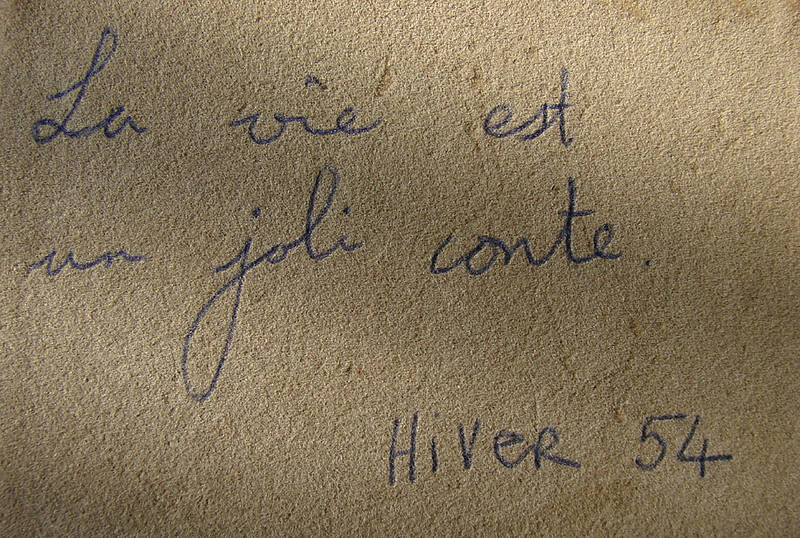 La vie est
un joli conte.
HiVER 54